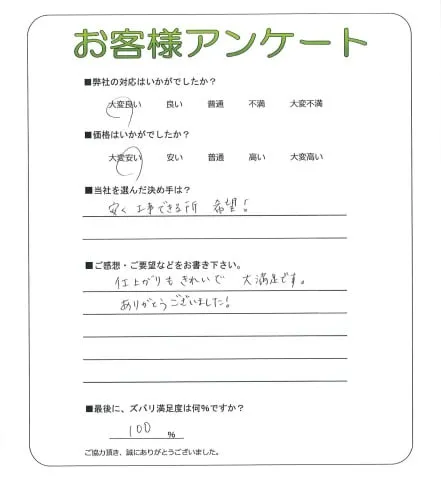 お客様アンケート
■弊社の対応はいかがでしたか？
大変良い 良い 普通 不満 大変不満
■価格はいかがでしたか？
大変安い 安い 普通 高い 大変高い
■当社を選んだ決め手は？
安く工事できる所 希望！
■ご感想・ご要望などをお書き下さい。
仕上がりもきれいで 大満足です。
ありがとうございました！
■最後に、ズバリ満足度は何％ですか？
100 ％
ご協力頂き、誠にありがとうございました。